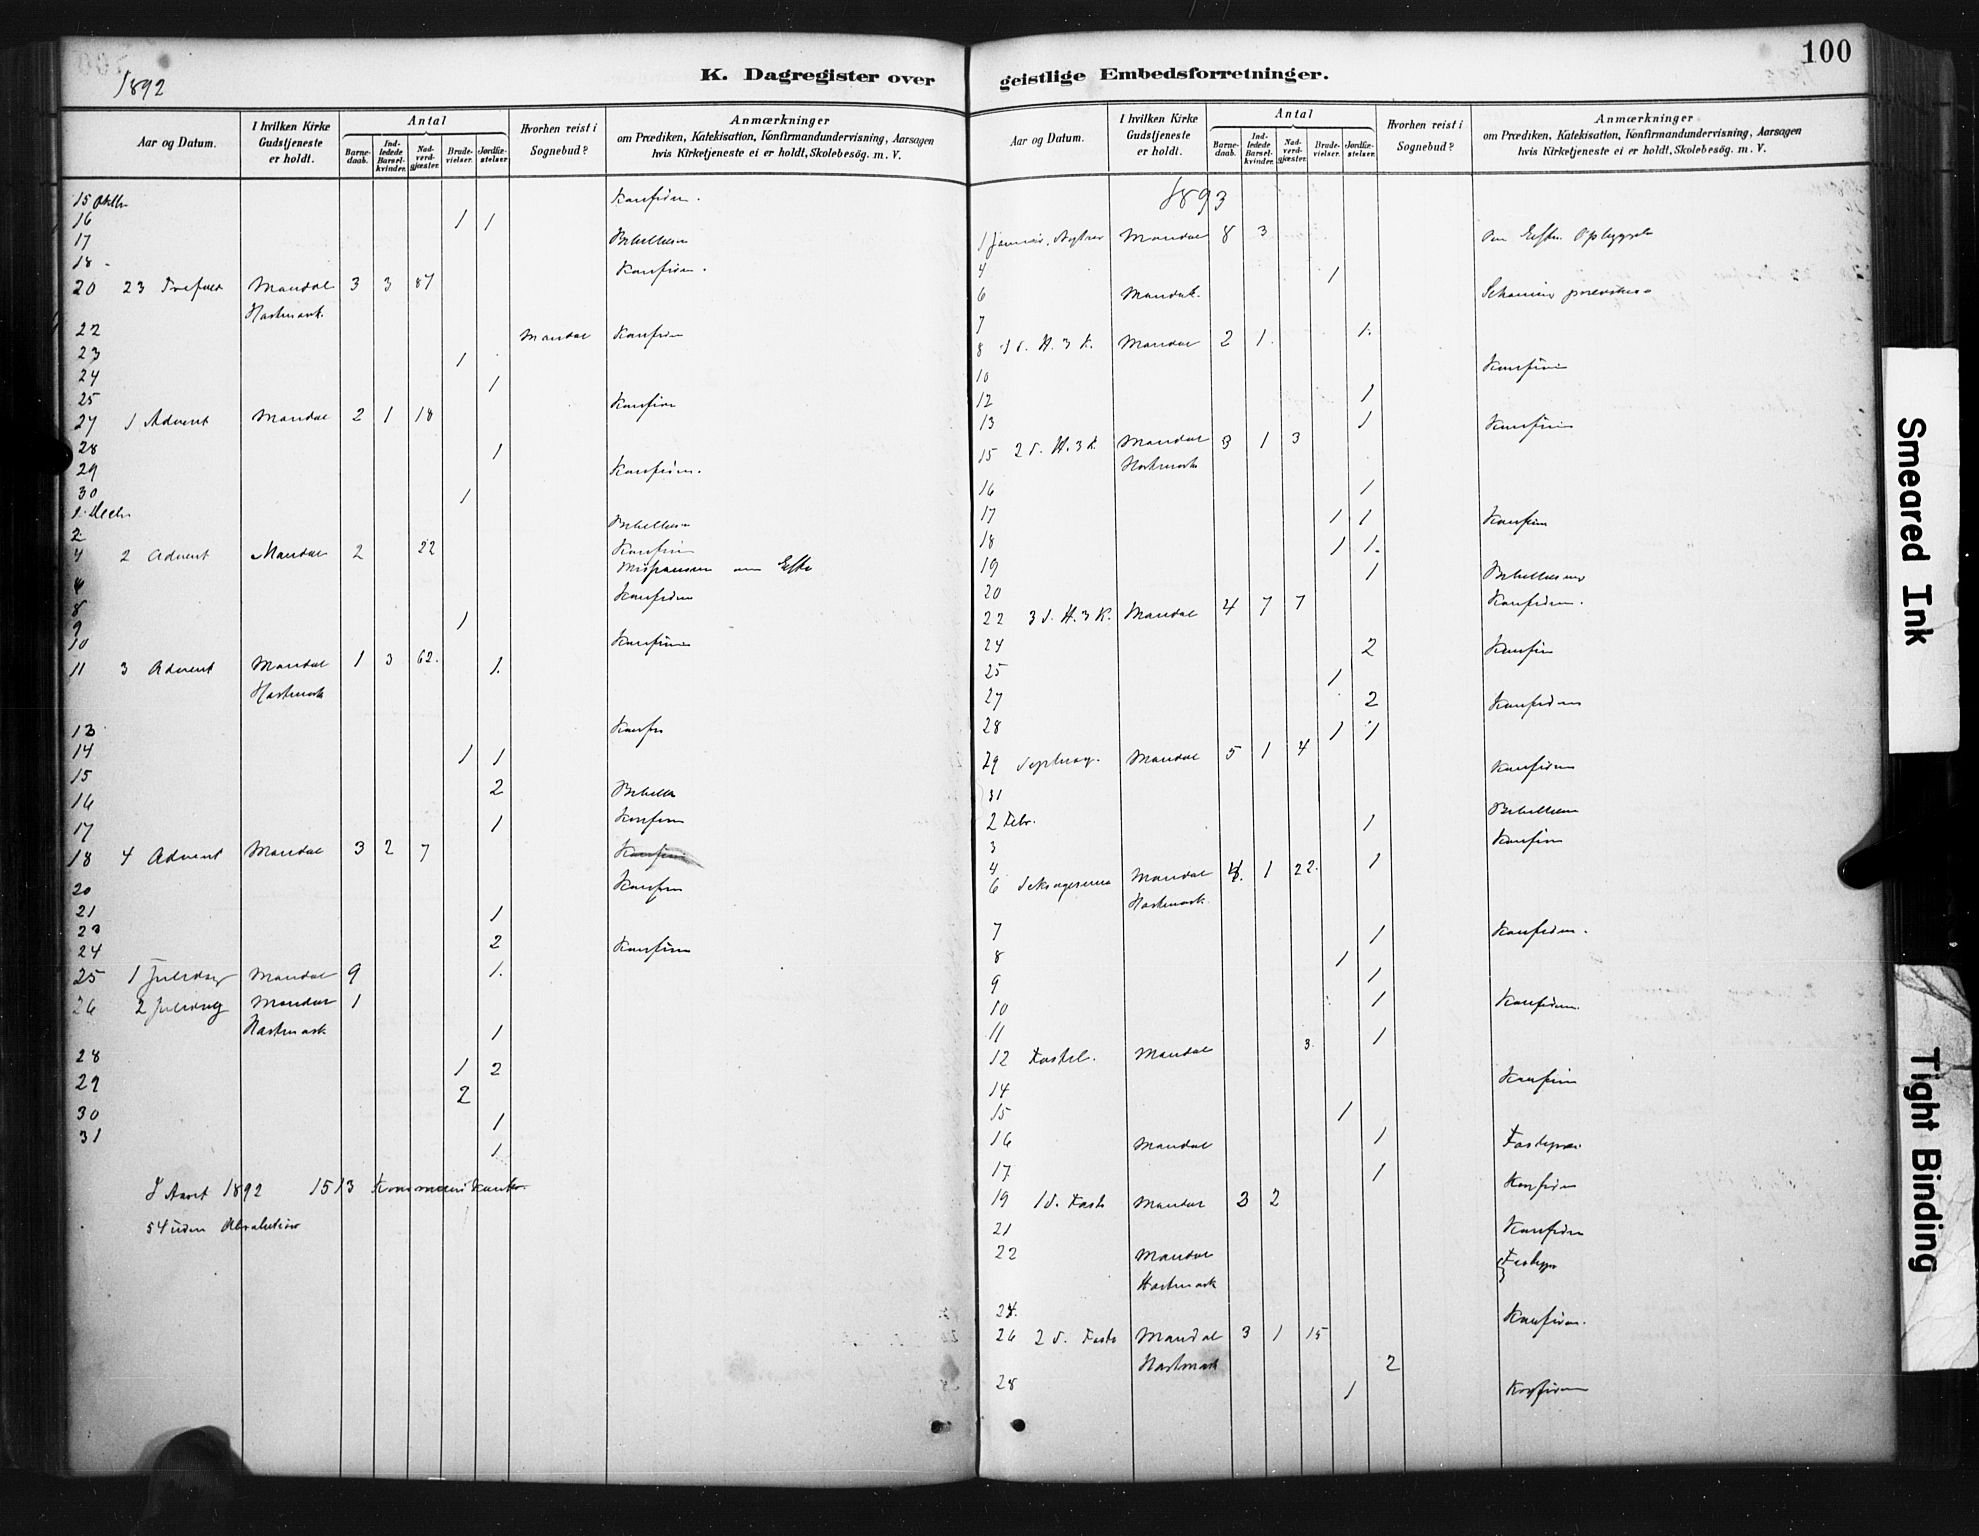 1892
K. Dagregister over
Aar og Datum. I hvilken Kirke Gudstjeneste er holdt. Antal Barnedaab. Indledede Barselkvinder. Nadverdgjæster. Brudevielser. Jordfæstelser. Hvorhen reist i Sognebud? Anmærkninger om Prædiken, Katekisation, Konfirmandundervisning, Aarsagen hvis Kirketjeneste ei er holdt, Skolebesög. m. V.
15
16 1 1
17 Bibellæsn
18
20 23 Trefold Mandal 3 3 87
Hartmark.
22 Mandal Konfirm
23 1
24 1
25 Konfirm
27 1 Advent Mandal 2 1 18
28 1
29 Konfirm.
30 1
1 Decbr
2 Bibellæsn
4 2 Advent Mandal 2 22 Konfirm
Missionen om Efte
6 Konfirm
8 1
9
10 Konfirm
11 3 Advent Mandal 1 3 62. 1.
Hartmark
13 Konfir
14 1 1
15 2 Bibellæ
16 Konfirm
17 1
18 4 Advent Mandal 3 2 7 Konfirm
20 Konfirm
21 1
23 2
24 Konfirm
25 1 Juledag Mandal 9 1.
26 2 Juledag Mandal 1
Hartmark 1
28 1 2
29 2
30 1
31 1
I Aaret 1892 1513 Kommunikanter.
54 uden Absolution
100
geistlige Embedsforretninger.
Aar og Datum. I hvilken Kirke Gudstjeneste er holdt. Antal Barnedaab. Indledede Barselkvinder. Nadverdgjæster. Brudevielser. Jordfæstelser. Hvorhen reist i Sognebud? Anmærkninger om Prædiken, Katekisation, Konfirmandundervisning, Aarsagen hvis Kirketjeneste ei er holdt, Skolebesög. m. V.
1893
1 Januar, Nytaar Mandal 8 3 om Eftm. Opbyggelse
4 1
6 Mandal.
7 1.
8 1 S. H. 3 K. Mandal 2 1.
10 Konfirm
12 1
13 1 Konfirm
15 2 S. H. 3 K. Mandal 3 1 3
Hartmark
16 1
17 1 1 Konfirm
18 1 1.
19 1 Bibellæsning
20 Konfirm.
22 3 S. H. 3 K. Mandal 4 7 7
24 2 Konfirm
25 1
27 2 Konfirm
28 1 1
29 Septuag. Mandal 5 1 4
31 Konfirm
2 Febr. 1 Bibellæsn
3 Konfirm
4 1
6 Seksagesima Mandal 4. 1 22.
Hartmark
7 1 Konfirm.
8 1
9 1
10 1 Konfirm.
11 1
12 Fastel. Mandal 3.
14 Konfirm
15 1
16 Mandal 1
17 1 Konfirm
19 1 S. Faste Mandal 3 2
21 Konfirm
22 Mandal
Hartmark
24. Konfirm.
26 2 S. Faste Mandal 3 1 15
Hartmark 2
28 1 Konfirm
Smeared Ink
Tight Binding